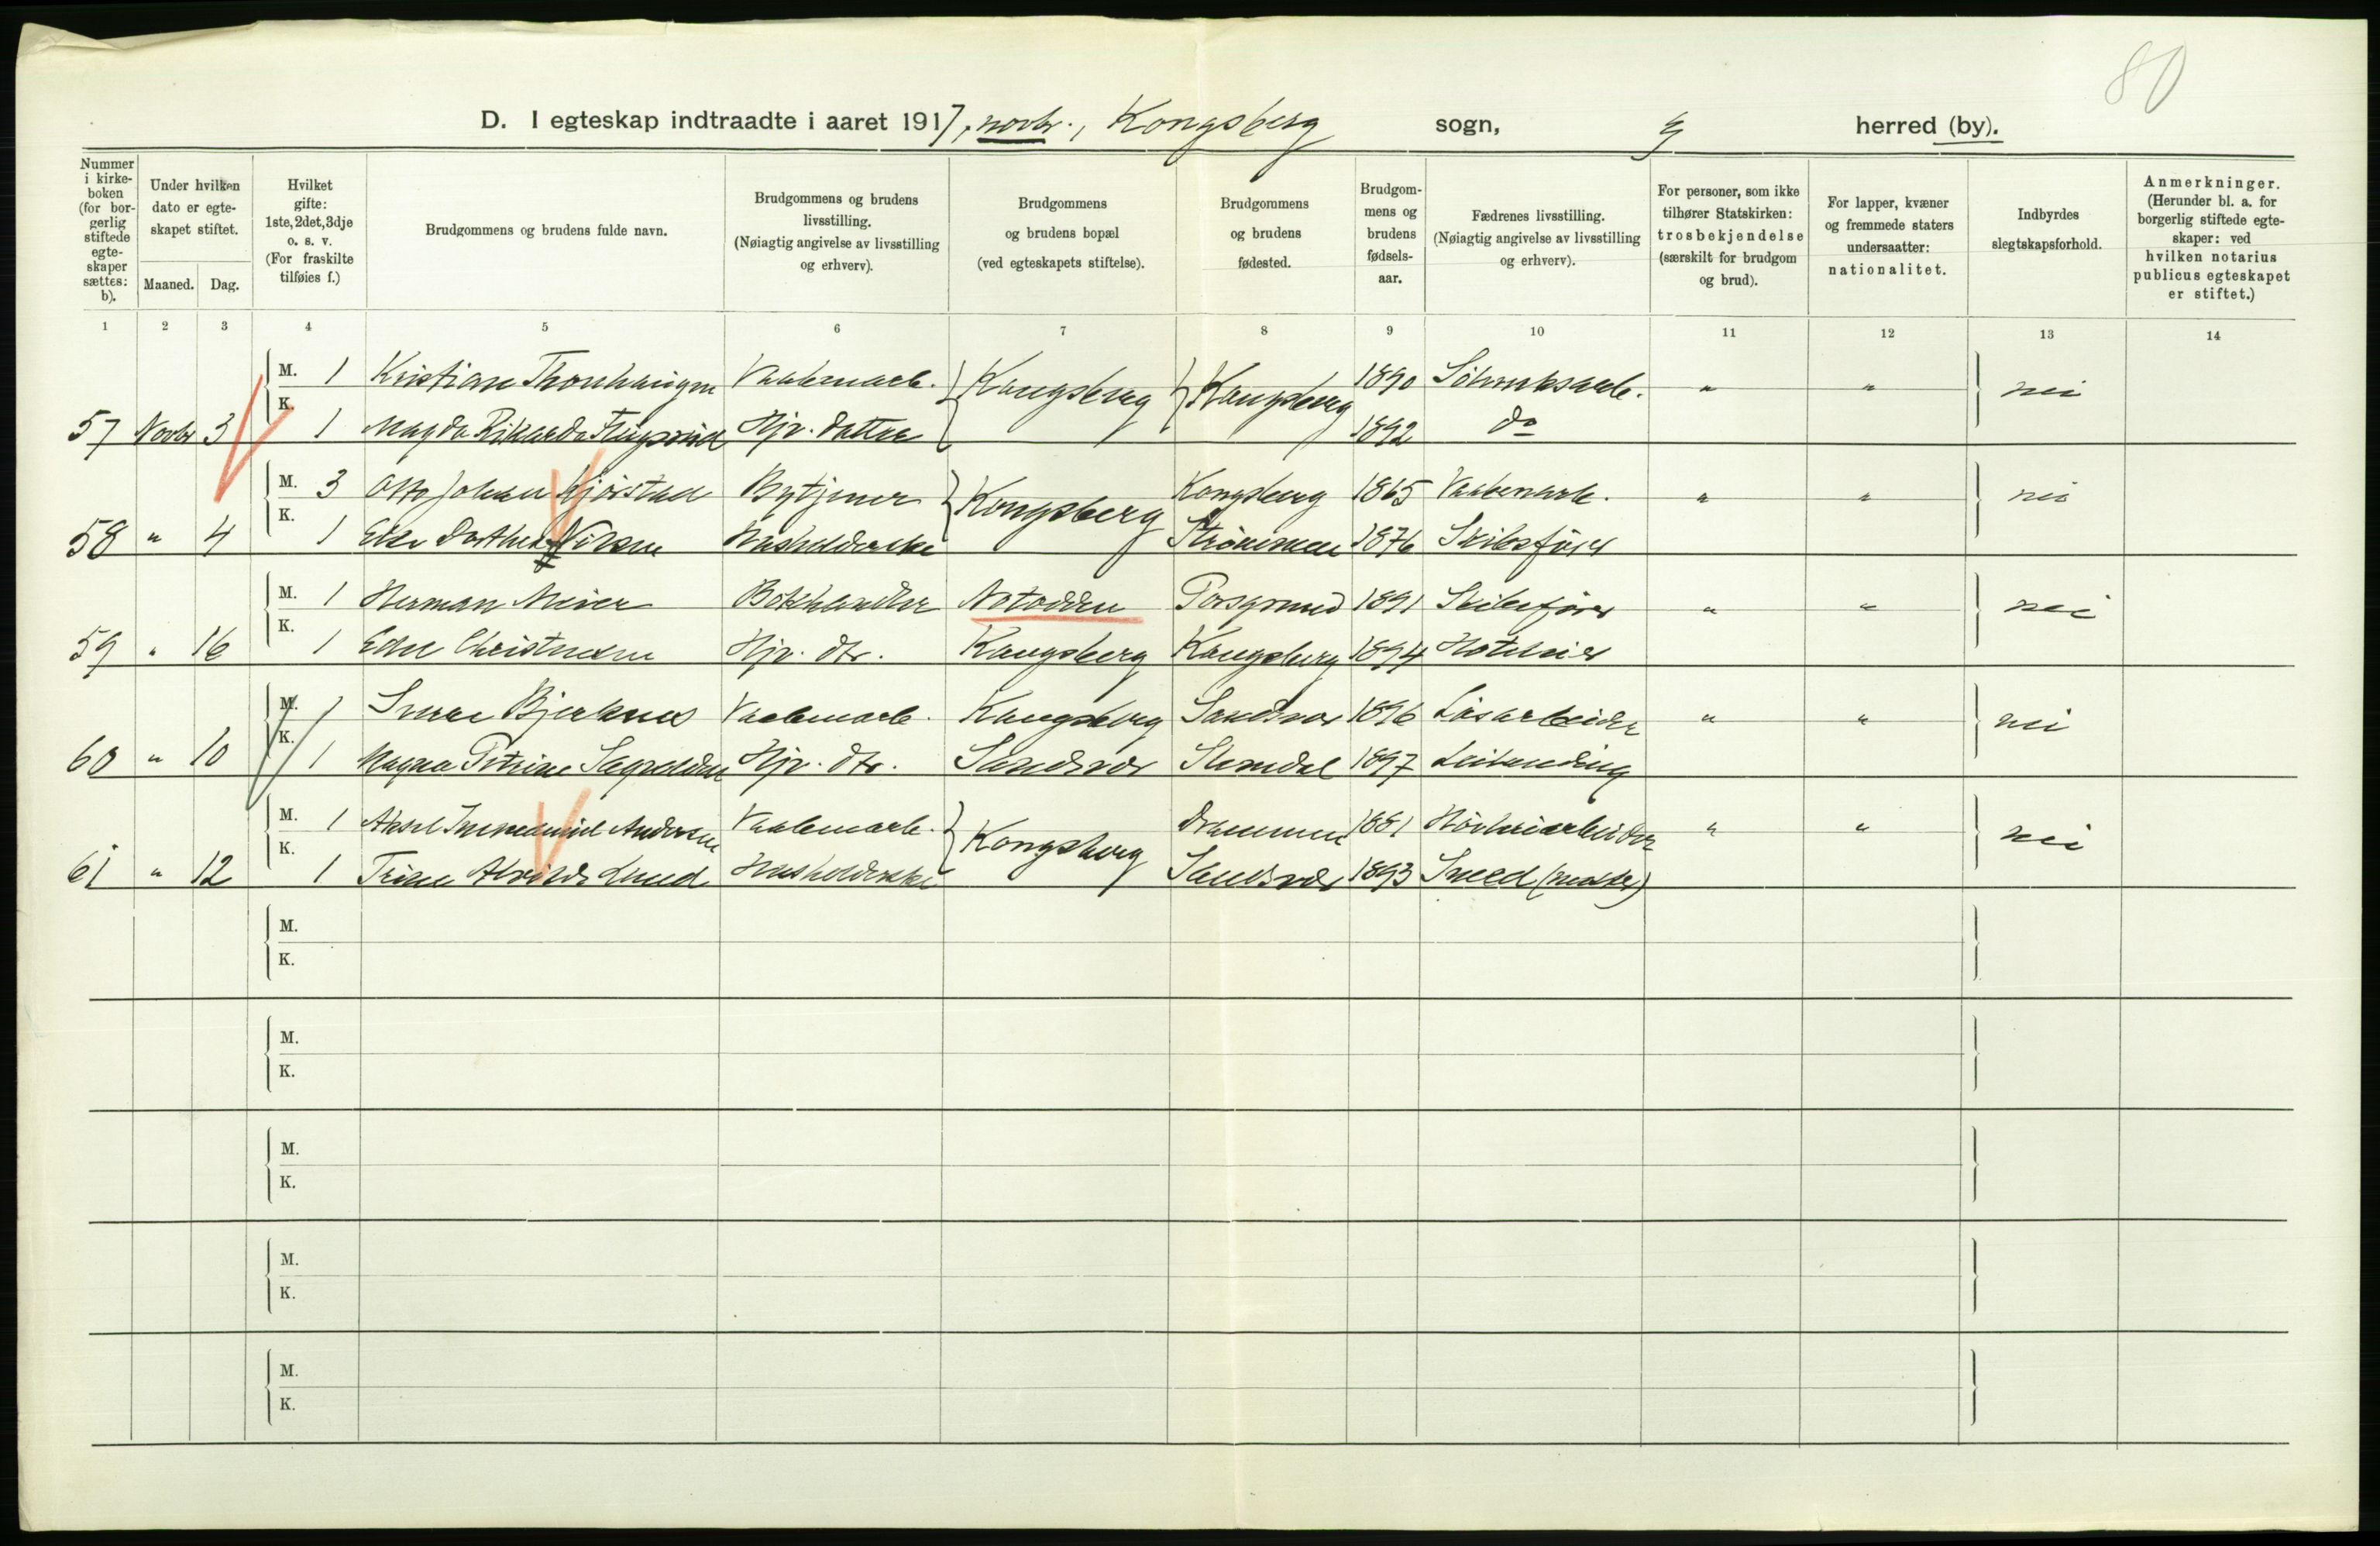 80
D. I egteskap indtraadte i aaret 1917, novbr., Kongsberg sogn, herred (by).
Nummer i kirke- boken (for bor- gerlig stiftede egte- skaper sættes: b).
Under hvilken dato er egte- skapet stiftet.
Maaned. Dag.
Hvilket gifte: 1ste, 2det, 3dje o. s. v. (For fraskilte tilføies f.)
Brudgommens og brudens fulde navn.
Brudgommens og brudens livsstilling. (Nøiagtig angivelse av livsstilling og erhverv).
Brudgommens og brudens bopæl (ved egteskapets stiftelse).
Brudgommens og brudens fødested.
Brudgom- mens og brudens fødsels- aar.
Fædrenes livsstilling. (Nøiagtig angivelse av livsstilling og erhverv).
For personer, som ikke tilhører Statskirken: trosbekjendelse (særskilt for brudgom og brud).
For lapper, kvæner og fremmede staters undersaatter: nationalitet.
Indbyrdes slegtskapsforhold.
Anmerkninger. (Herunder bl. a. for borgerlig stiftede egte- skaper: ved hvilken notarius publicus egteskapet er stiftet.)
1 2 3 4 5 6 7 8 9 10 11 12 13 14
M. 1 Kristian Vaabenarb. Kongsberg Kongsberg 1890 Sølvverksarb. " " nei
57 Novbr 3 K. 1 Magda Rikarda Hjv. datter 1892 do
M. 3 Otto Johan Kjørstad Bytjener Kongsberg Kongsberg 1865 Vaabenarb. " " nei
58 " 4 K. 1 Else Dorthea Nilsen Husholderske Strømmen 1876 Skibsfører
M. 1 Herman Meier Bokhandler Notodden Porsgrund 1891 Skibsfører " " nei
59 " 16 K. 1 Christensen Hjv. dtr. Kongsberg Kongsberg 1894 Hoteleier
M. 1 Sverre Bjerknes Vaabenarb. Kongsberg Sandsvær 1896 Løsarbeider " " nei
60 " 10 K. 1 Magna Petrine Hjv. dtr. Sandsvær 1897 Leilending
M. 1 Aksel Immanuel Andersen Vaabenarb. Kongsberg Drammen 1881 Høvleriarbeider " " nei
61 " 12 K. 1 Trine Alvilde Lund Husholderske Sandsvær 1893 Smed (mester)
M.
K.
M.
K.
M.
K.
M.
K.
M.
K.